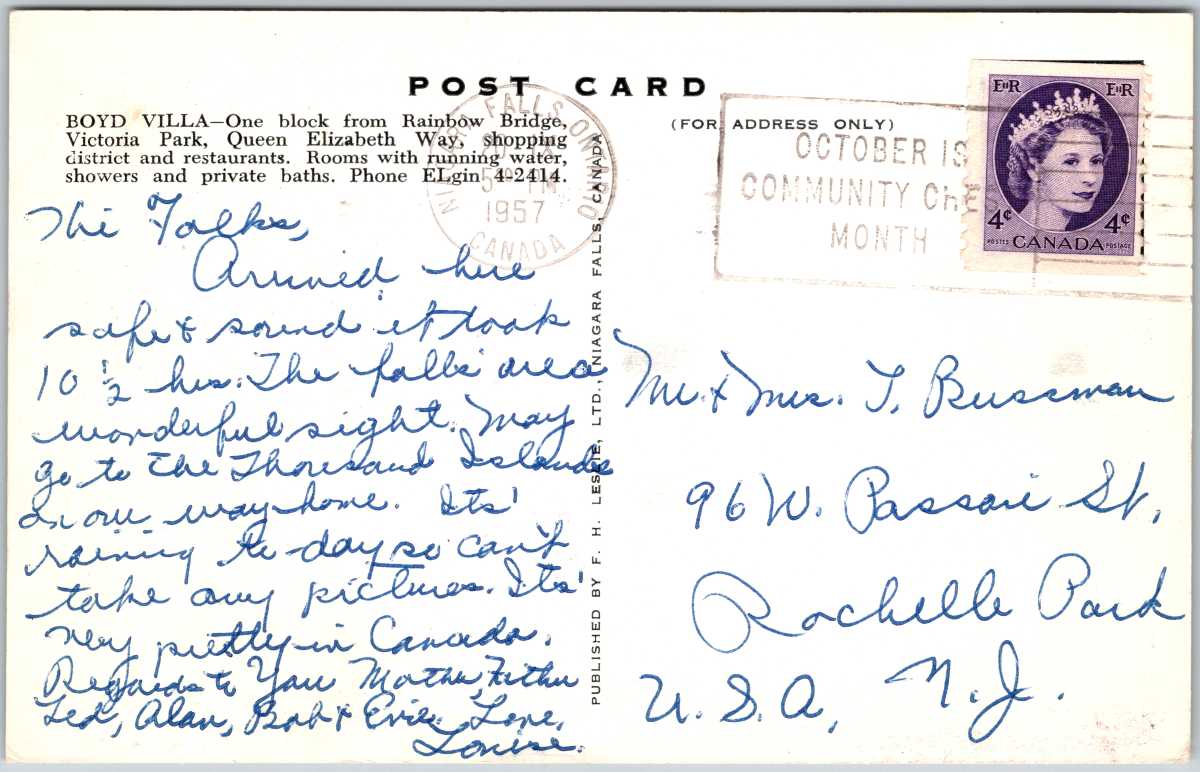 POST CARD
BOYD VILLA—One block from Rainbow Bridge,
Victoria Park, Queen Elizabeth Way, shopping
district and restaurants. Rooms with running water,
showers and private baths. Phone ELgin 4-2414.
(FOR ADDRESS ONLY)
NIAGARA FALLS ONTARIO
1957
CANADA
OCTOBER IS
COMMUNITY CHE
MONTH
EIIR EIIR
4¢ 4¢
POSTES CANADA POSTAGE
Hi Folks,
Arrived here
safe & sound it took
10 1/2 hrs. The falls are a
wonderful sight. May
go to the Thousand Islands
on our way home. Its'
raining to-day so can't
take any pictures. Its'
very pretty in Canada.
Regards to You Mother, Father
Ted, Alan, Bob & Evie. Love,
Louise.
PUBLISHED BY F. H. LESLIE, LTD., NIAGARA FALLS, CANADA
Mr. & Mrs. T. Bussman
96 W. Passaic St.
Rochelle Park
N. J.
U. S. A,